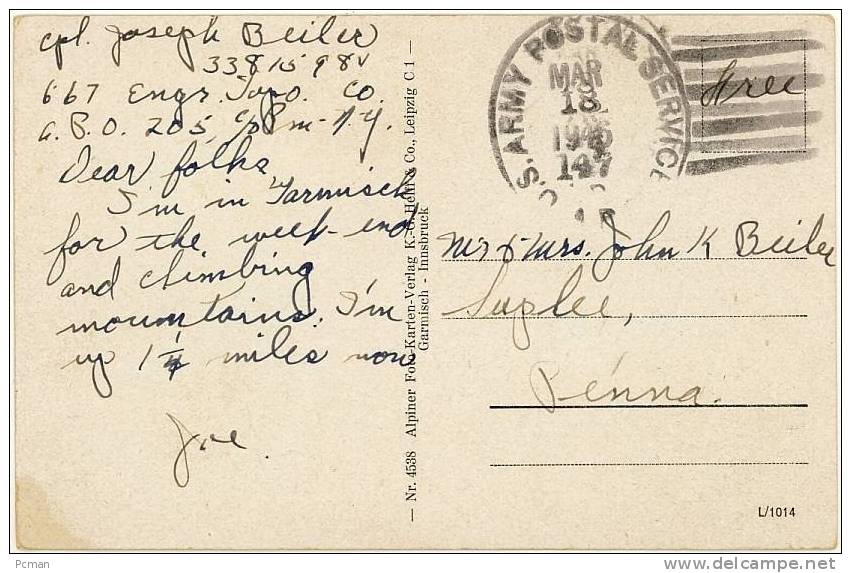 cpl. Joseph Beiler
33815984
667 Engr. Topo. Co.
A.P.O. 205, c/o P.m. - N.Y.
Dear folks,
I'm in Garmisch
for the week-end
and climbing
mountains. I'm
up 1 1/4 miles now
Joe.
— Nr. 4538 Alpiner Foto-Karten-Verlag K.-G. Hehl & Co., Leipzig C 1 —
Garmisch - Innsbruck
U.S. ARMY POSTAL SERVICE
MAR
18
1946
147
Free
Mr & Mrs. John K Beiler
Suplee,
Penna.
L/1014
Pcman
delcampe.net